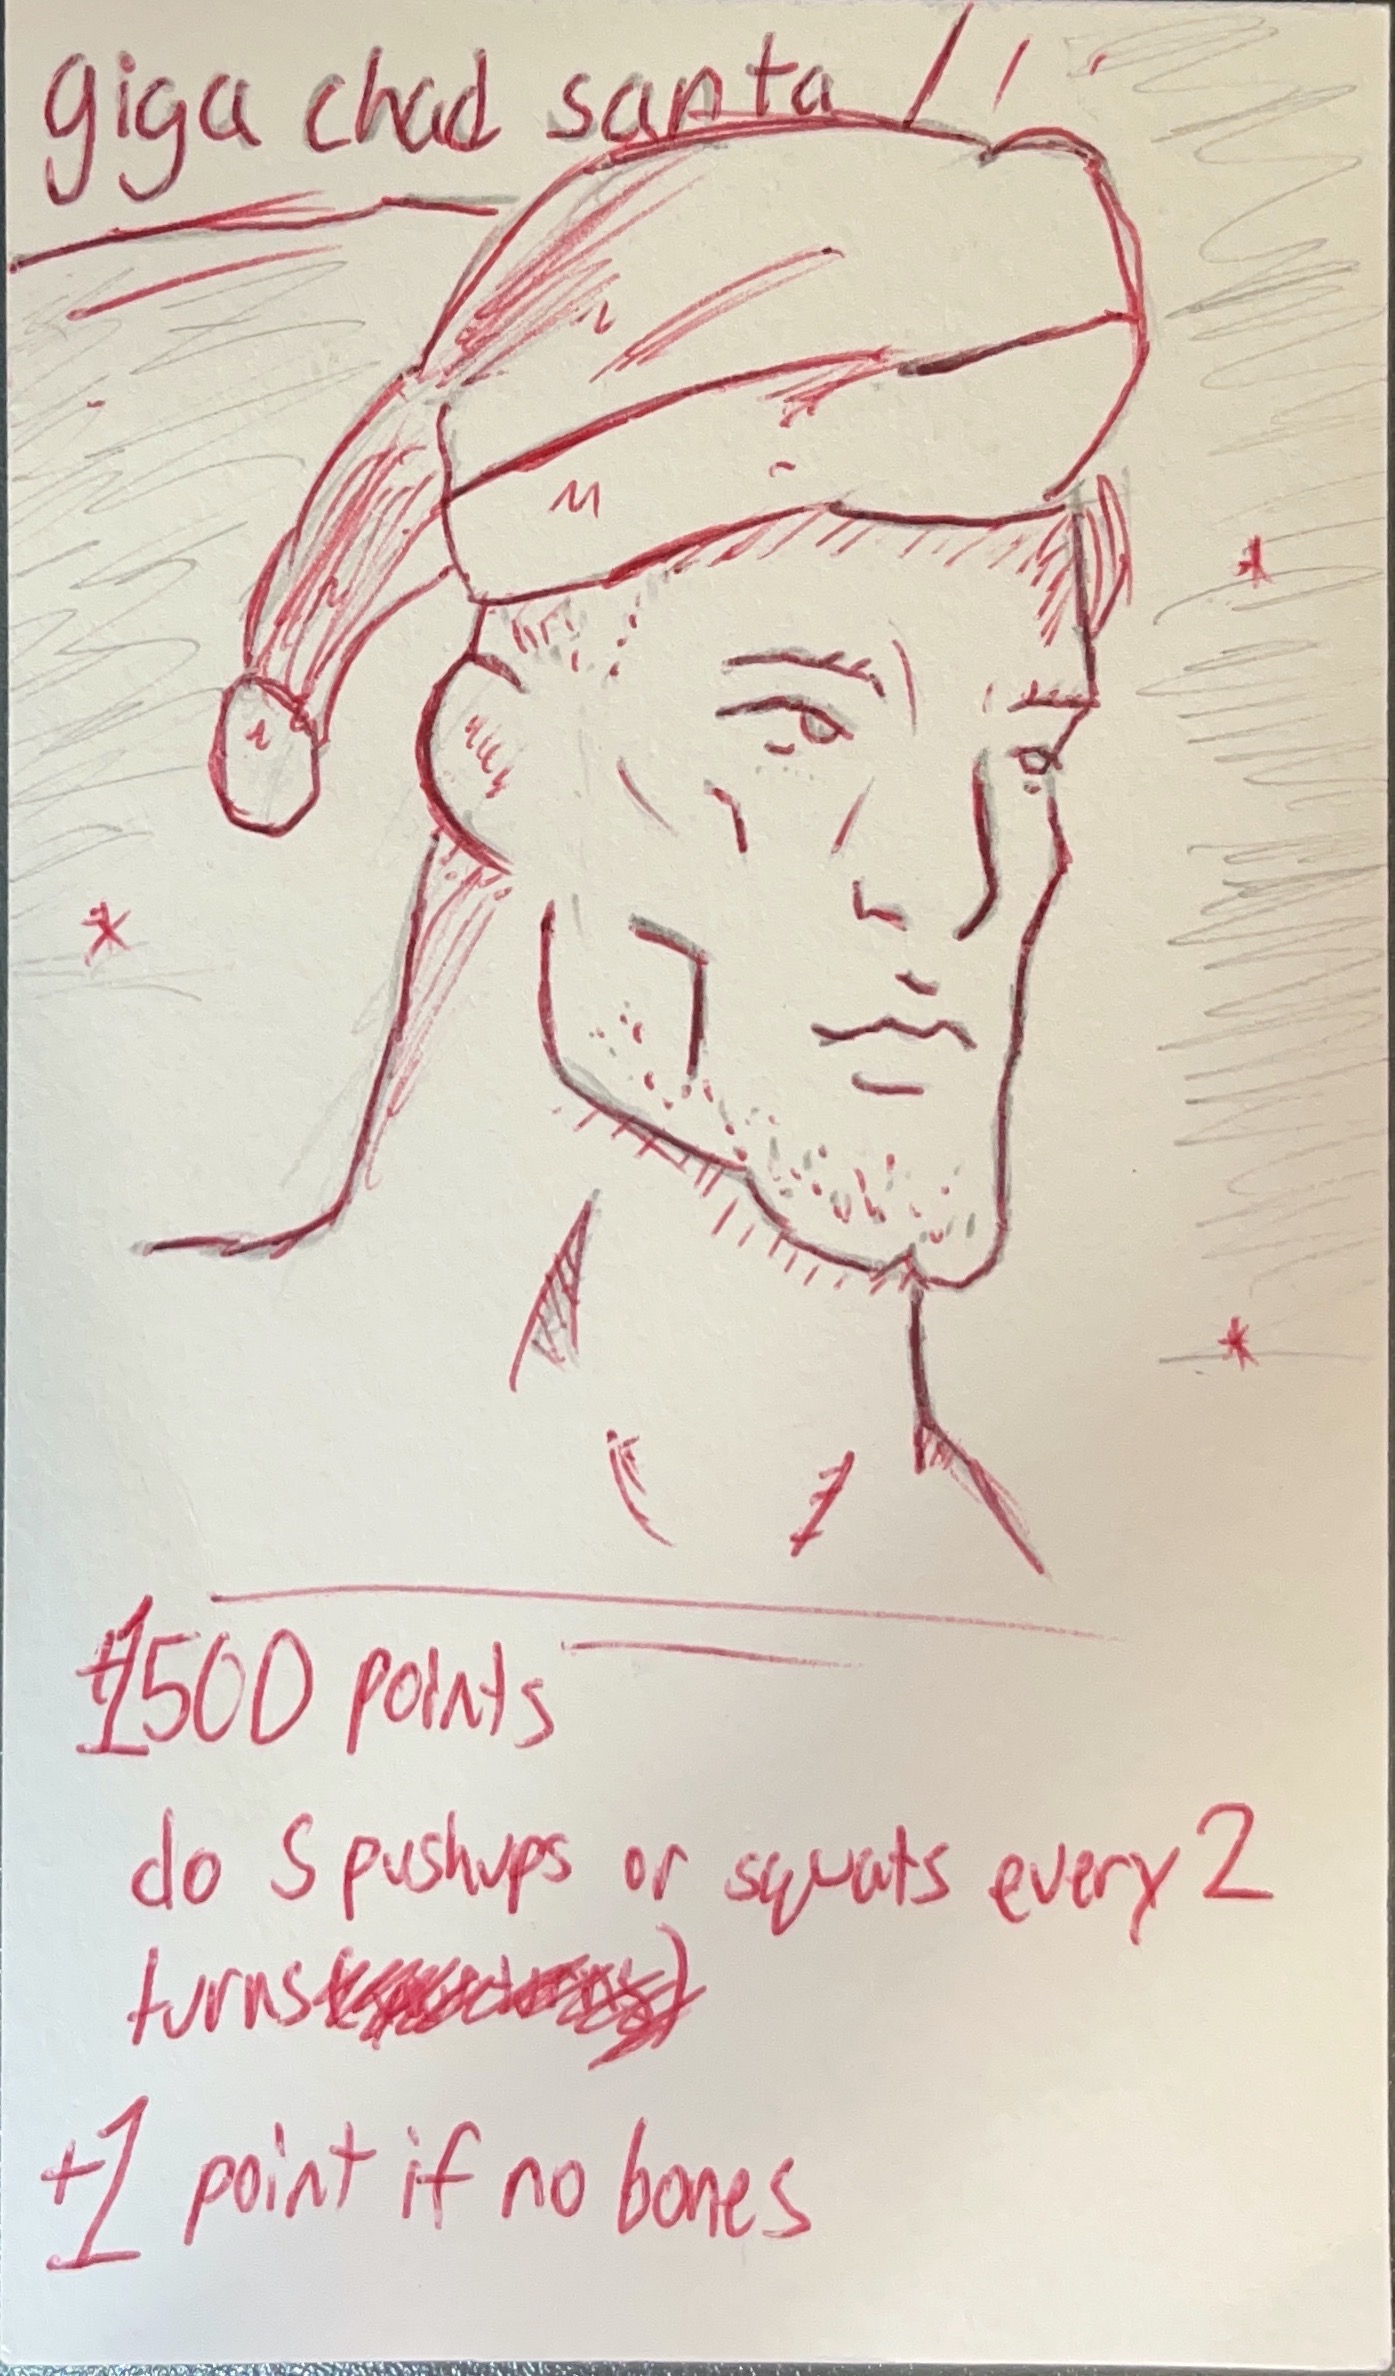 giga chad santa
+1500 points
do 5 pushups or squats every 2
turns
+1 point if no bones